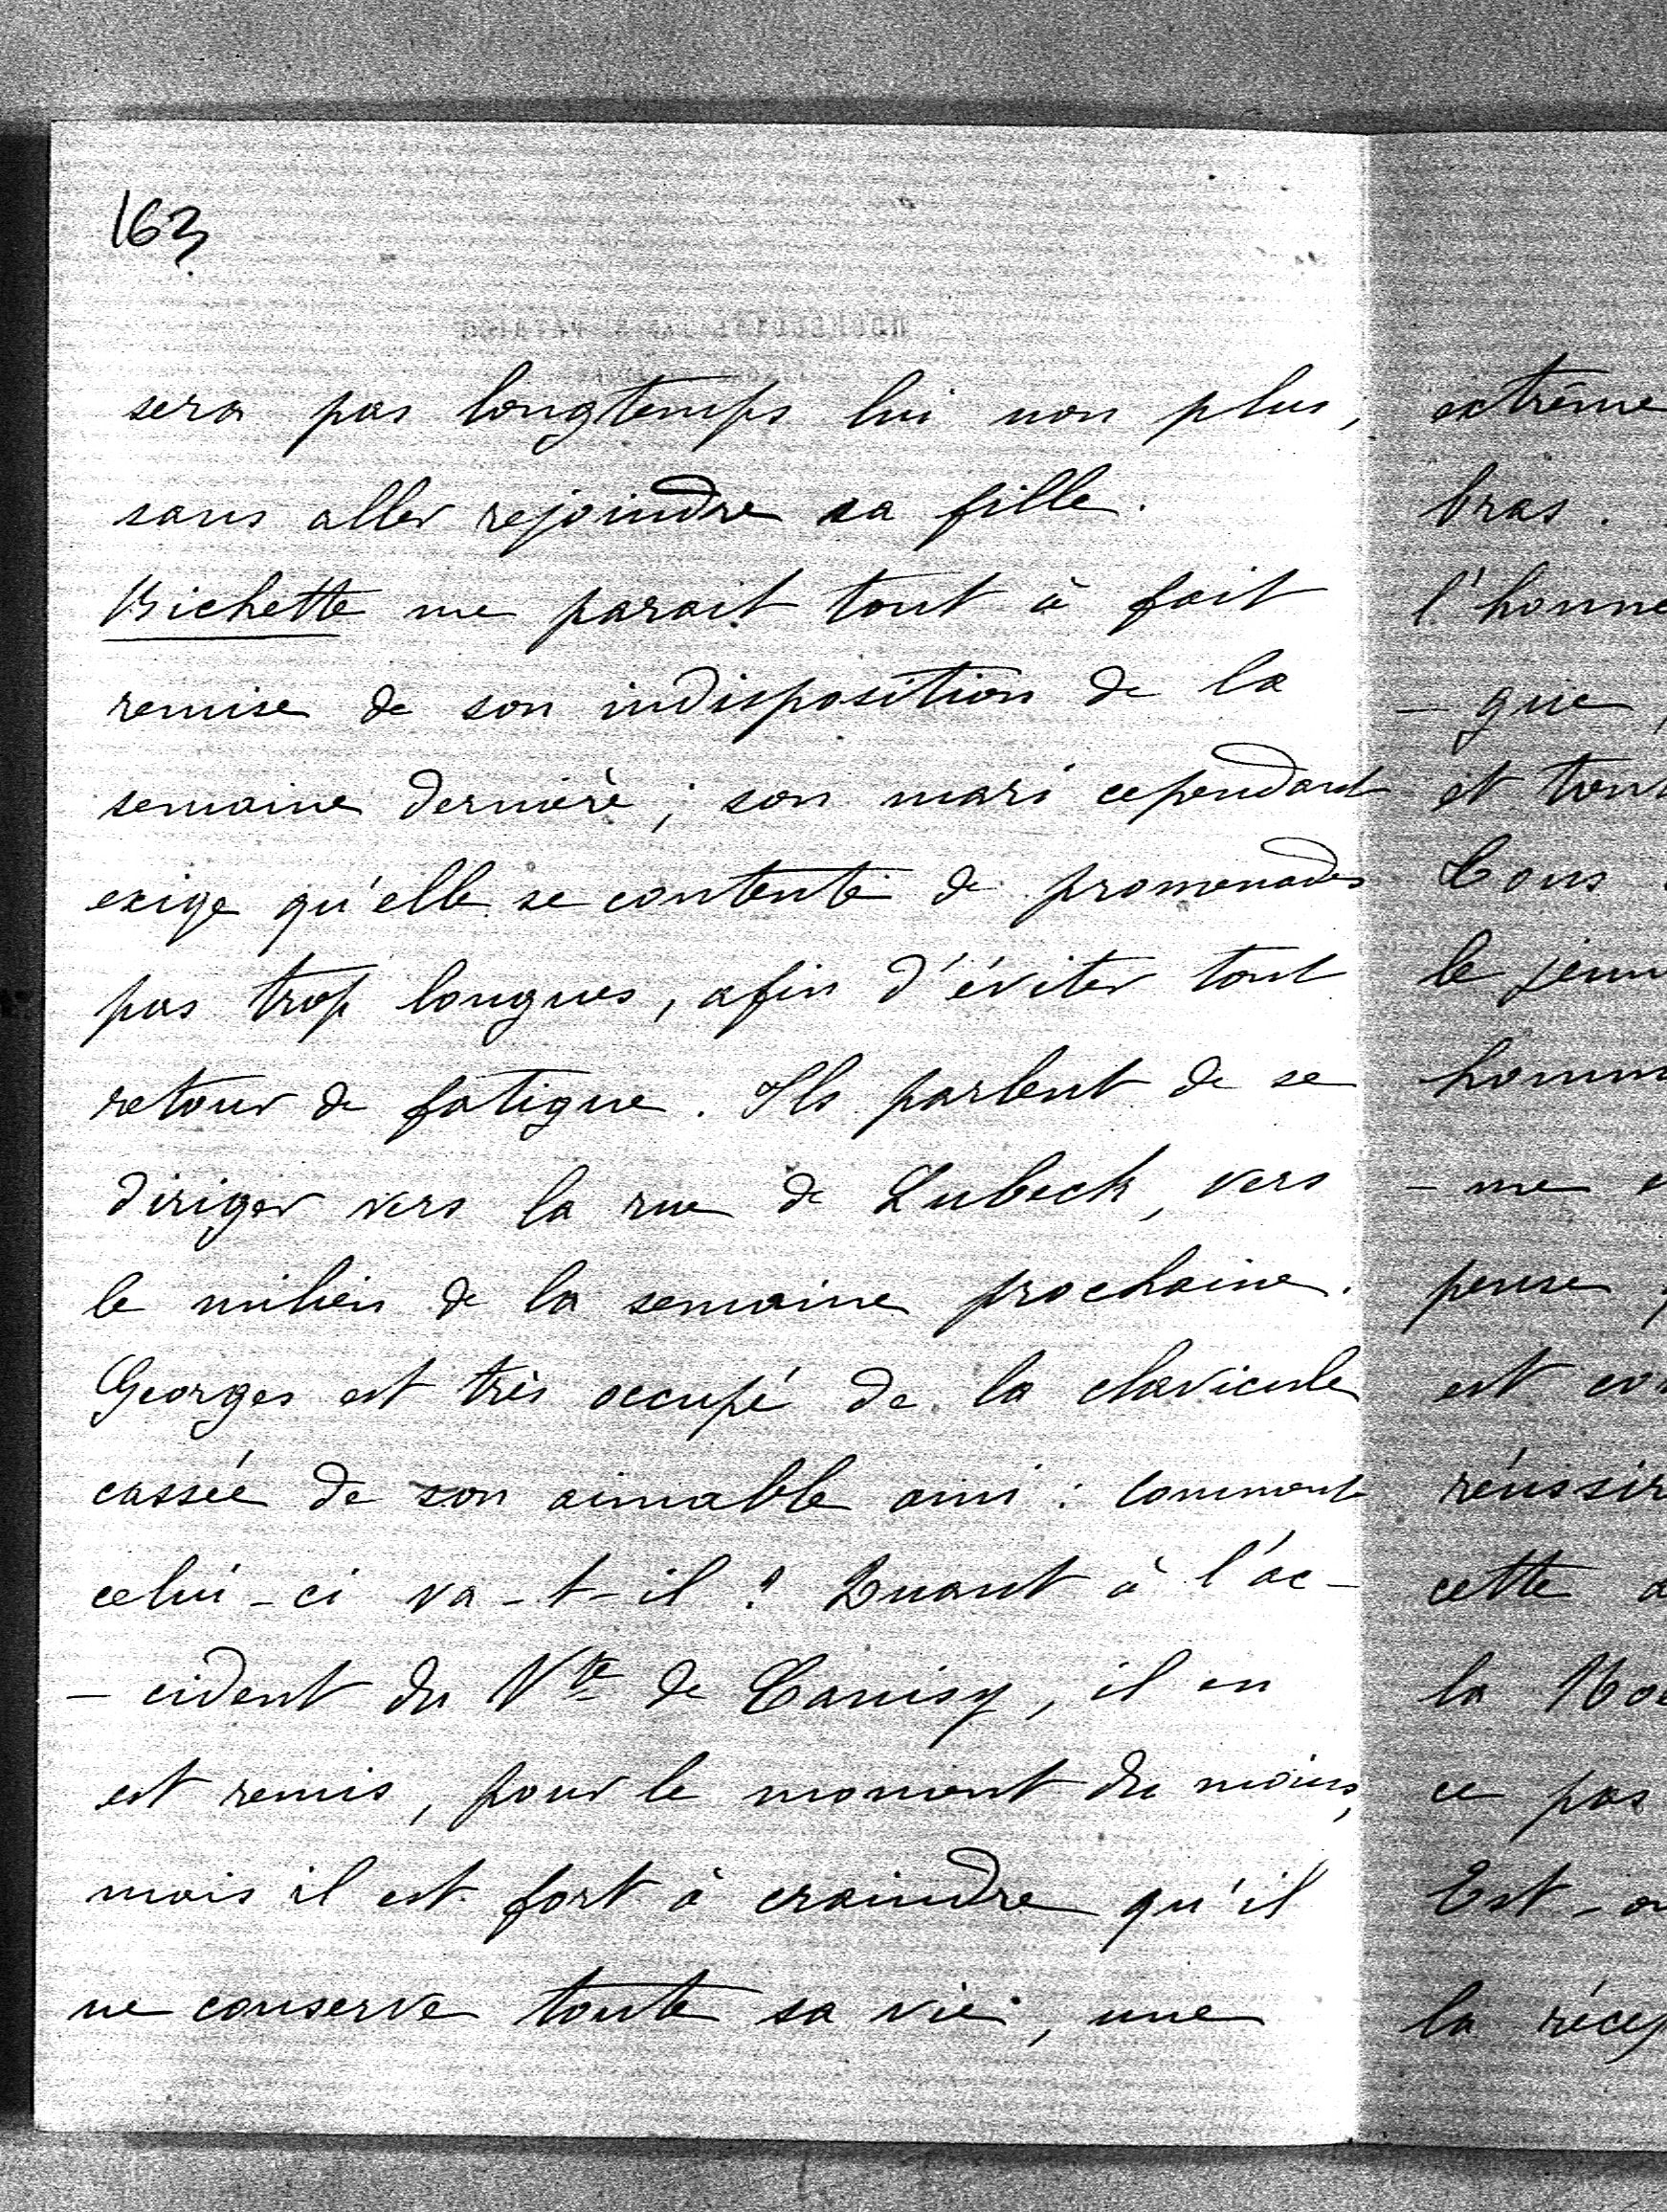 163
sera pas longtemps lui non plus,
sans aller rejoindre sa fille.
Bichette me parait tout à fait
remise de son indisposition de la
semaine dernière ; son mari cependant
exige qu'elle se contente de promenades
pas trop longues, afin d'éviter tout
retour de fatigue. Ils parlent de se
diriger vers la rue de Lubeck, vers
le milieu de la semaine prochaine.
Georges est très occupé de la clavicule
cassée de son aimable ami : comment
celui-ci va-t-il ? Quant à l'ac-
-cident du Vte de Canisy, il en
est remis, pour le moment du moins,
mais il est fort à craindre qu'il
ne conserve toute sa vie, une
extrême
bras.
l'honne
- que
et tout
Tous
le jeun
homm
- me
pense
est con
réussir
cette
la
ce pas
Est-
la récep